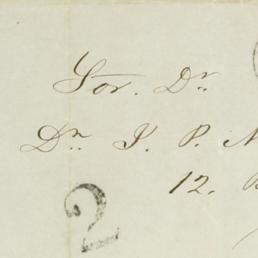 Sor. Dr
Dn. J. P. N
12. B
2